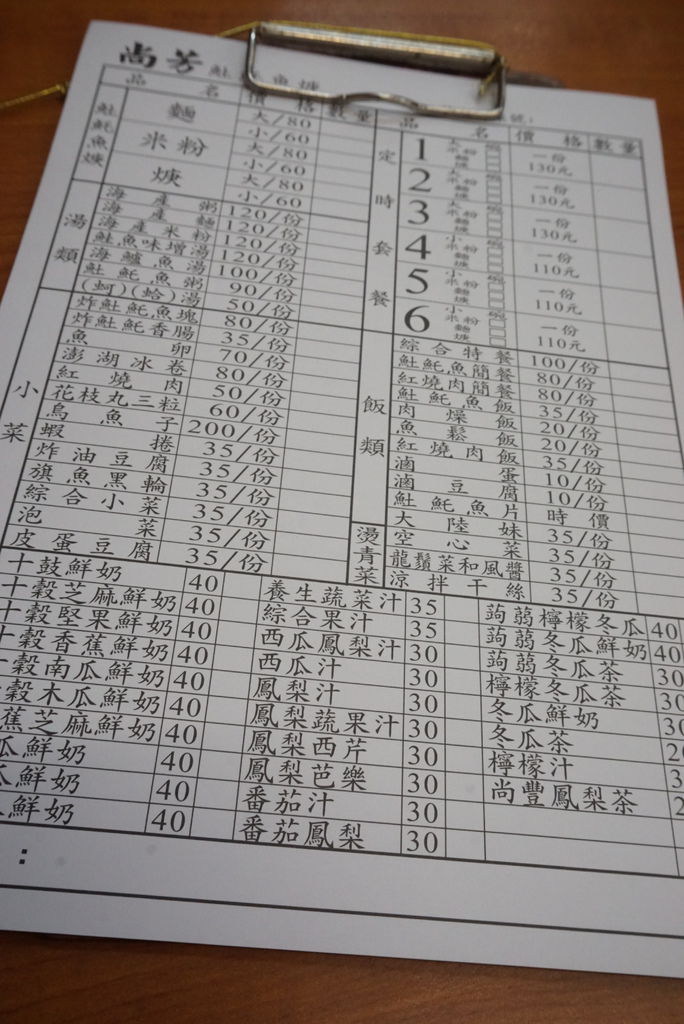 尚芳 𩵚 魚 焿
號：
品 名 價 格 數量
𩵚魠魚焿
麵 大/80
小/60
米粉 大/80
小/60
焿 大/80
小/60
湯類
海產粥 120/份
海產麵 120/份
海產米粉 120/份
鮭魚味增湯 120/份
海鱸魚湯 100/份
𩵚魠魚粥 90/份
(蚵)(蛤)湯 50/份
小菜
炸𩵚魠魚塊 80/份
炸𩵚魠香腸 35/份
魚卵 70/份
澎湖冰卷 80/份
紅燒肉 50/份
花枝丸三粒 60/份
烏魚子 200/份
蝦捲 35/份
炸油豆腐 35/份
旗魚黑輪 35/份
綜合小菜 35/份
泡菜 35/份
皮蛋豆腐 35/份
品 名 價 格 數量
定時套餐
1 大 米粉 麵 焿 一份 130元
2 大 米粉 麵 焿 一份 130元
3 大 米粉 麵 焿 一份 130元
4 小 米粉 麵 焿 一份 110元
5 小 米粉 麵 焿 一份 110元
6 小 米粉 麵 焿 一份 110元
飯類
綜合特餐 100/份
𩵚魠魚簡餐 80/份
紅燒肉簡餐 80/份
𩵚魠魚飯 35/份
肉燥飯 20/份
魚鬆飯 20/份
紅燒肉飯 35/份
滷蛋 10/份
滷豆腐 10/份
𩵚魠魚片 時價
湯青菜
大陸妹 35/份
空心菜 35/份
龍鬚菜和風醬 35/份
涼拌干絲 35/份
十鼓鮮奶 40
十穀芝麻鮮奶 40
十穀堅果鮮奶 40
十穀香蕉鮮奶 40
十穀南瓜鮮奶 40
穀木瓜鮮奶 40
蕉芝麻鮮奶 40
瓜鮮奶 40
瓜鮮奶 40
鮮奶 40
養生蔬菜汁 35
綜合果汁 35
西瓜鳳梨汁 30
西瓜汁 30
鳳梨汁 30
鳳梨蔬果汁 30
鳳梨西芹 30
鳳梨芭樂 30
番茄汁 30
番茄鳳梨 30
蒟蒻檸檬冬瓜 40
蒟蒻冬瓜鮮奶 40
蒟蒻冬瓜茶 30
檸檬冬瓜茶 30
冬瓜鮮奶 30
冬瓜茶
檸檬汁
尚豐鳳梨茶
：